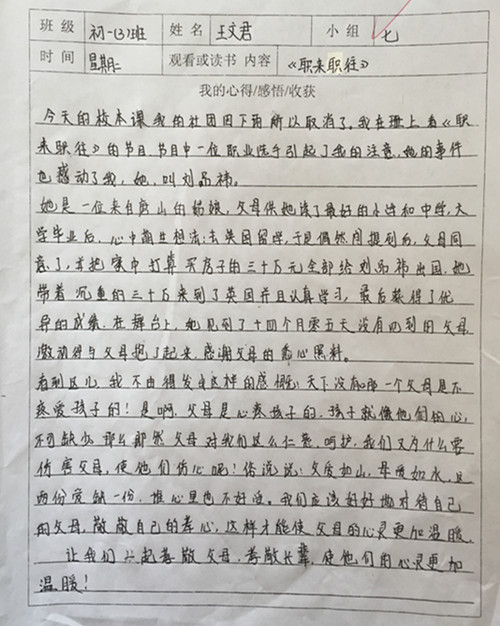 班级 初一(3)班 姓名 王文君 小组 七
时间 星期二 观看或读书 内容 《职来职往》
我的心得/感悟/收获
今天的校本课我的社团因下雨所以取消了。我在班上看《职
来职往》的节目,节目中一位职业选手引起了我的注意,她的事件
也感动了我,她,叫刘品祎。
她是一位来自唐山的姑娘,父母供她读了最好的小学和中学,大
学毕业后,心中萌生想法:去英国留学,于是偶然间提到后,父母同
意了,并把家中打算买房子的三十万元全部给刘品祎出国,她
带着沉重的三十万来到了英国并且认真学习,最后获得了优
异的成绩,在舞台上,她见到了十四个月零五天没有见到的父母
激动得与父母抱了起来,感谢父母的悉心照料。
看到这儿,我不由得发出这样的感慨:天下没有哪一个父母是不
疼爱孩子的!是啊,父母是心疼孩子的,孩子就像他们的心,
不可缺少,那么既然父母对我们这么仁爱,呵护,我们又为什么要
伤害父母,使他们伤心呢!俗说说:父爱如山,母爱如水,
两份爱缺一份,谁心里也不好受。我们应该好好地对待自己
的父母,敬敬自己的孝心,这样才能使父母的心灵更加温暖。
让我们一起孝敬父母,孝敬长辈,使他们的心灵更加
温暖!